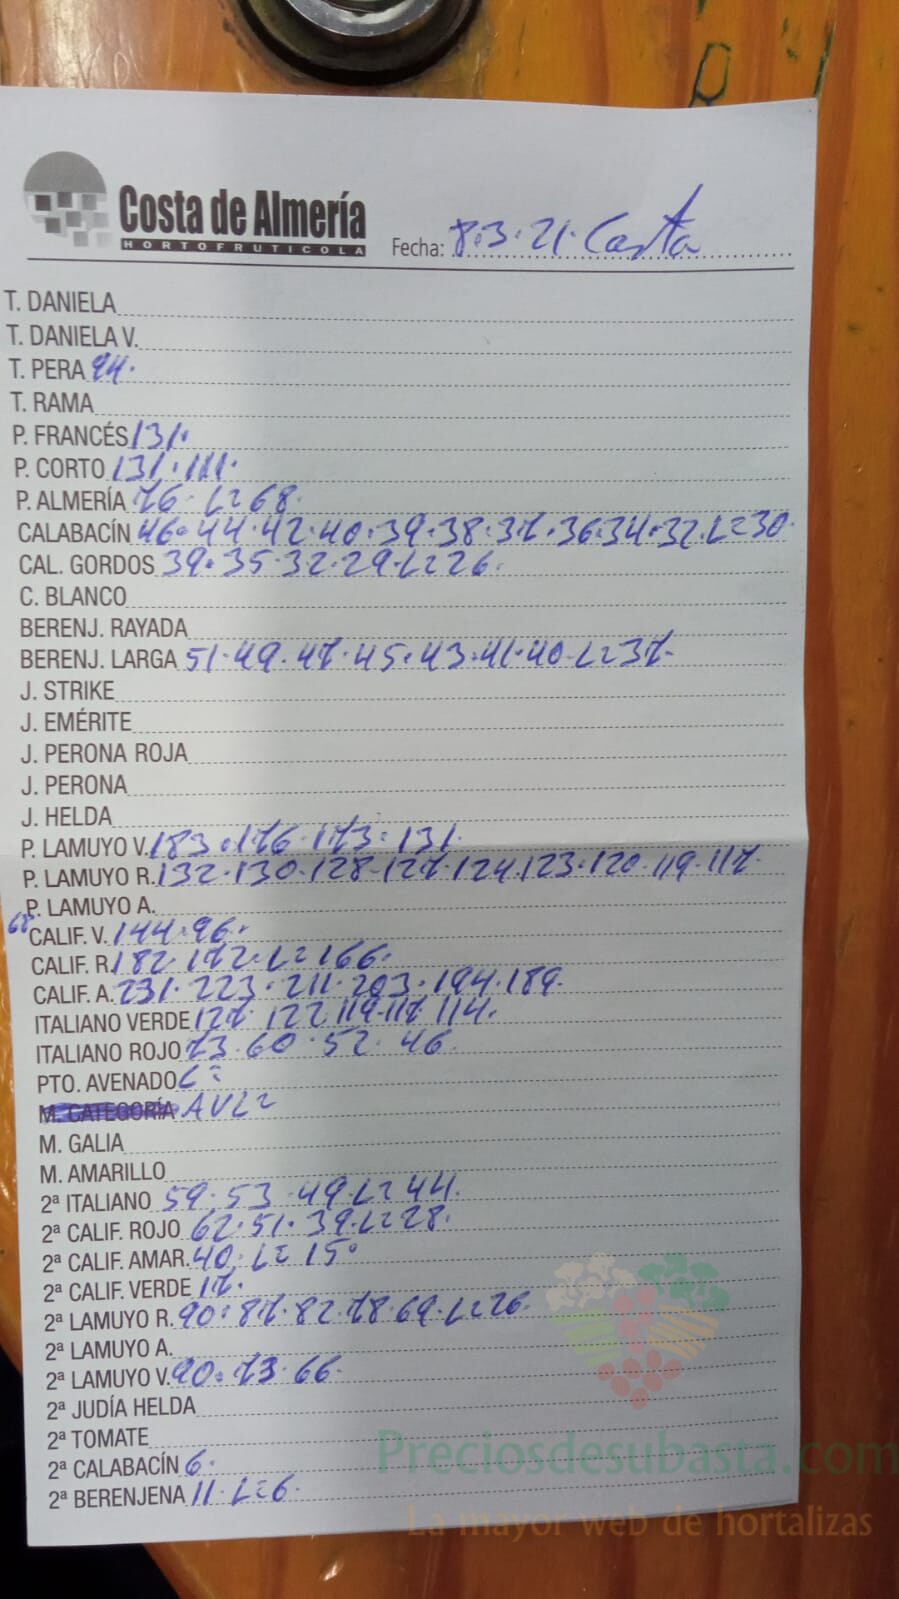 Costa de Almería
HORTOFRUTICOLA
Fecha: 8.3.21. Costa
T. DANIELA
T. DANIELA V.
T. PERA 94.
T. RAMA
P. FRANCÉS 131.
P. CORTO 131. 111.
P. ALMERÍA 76. L= 68.
CALABACÍN 46. 44. 42. 40. 39. 38. 37. 36. 34. 32. L= 30.
CAL. GORDOS 39. 35. 32. 29. L= 26.
C. BLANCO
BERENJ. RAYADA
BERENJ. LARGA 51. 49. 47. 45. 43. 41. 40. L= 37.
J. STRIKE
J. EMÉRITE
J. PERONA ROJA
J. PERONA
J. HELDA
P. LAMUYO V. 183. 176. 173. 131.
P. LAMUYO R. 132. 130. 128. 127. 124. 123. 120. 119. 117.
P. LAMUYO A.
68 CALIF. V. 144. 96.
CALIF. R. 182. 172. L= 166.
CALIF. A. 231. 223. 211. 203. 194. 189.
ITALIANO VERDE 127. 122 119. 117. 114.
ITALIANO ROJO 73. 60. 52. 46.
PTO. AVENADO L=
M. CATEGORÍA
M. GALIA
M. AMARILLO
2ª ITALIANO 59. 53. 49. L= 44.
2ª CALIF. ROJO 62. 51. 39. L= 28.
2ª CALIF. AMAR. 40. L= 15.
2ª CALIF. VERDE 17.
2ª LAMUYO R. 90. 87. 82. 78 69. L= 26.
2ª LAMUYO A.
2ª LAMUYO V. 90. 73. 66.
2ª JUDÍA HELDA
2ª TOMATE
2ª CALABACÍN 6.
2ª BERENJENA 11. L= 6.
Preciosdesubasta.com
La mayor web de hortalizas